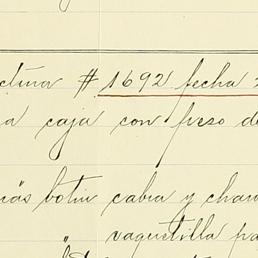 ctura # 1692 fecha 2
a caja con peso de
ás botin cabra y char
vaquetilla pa